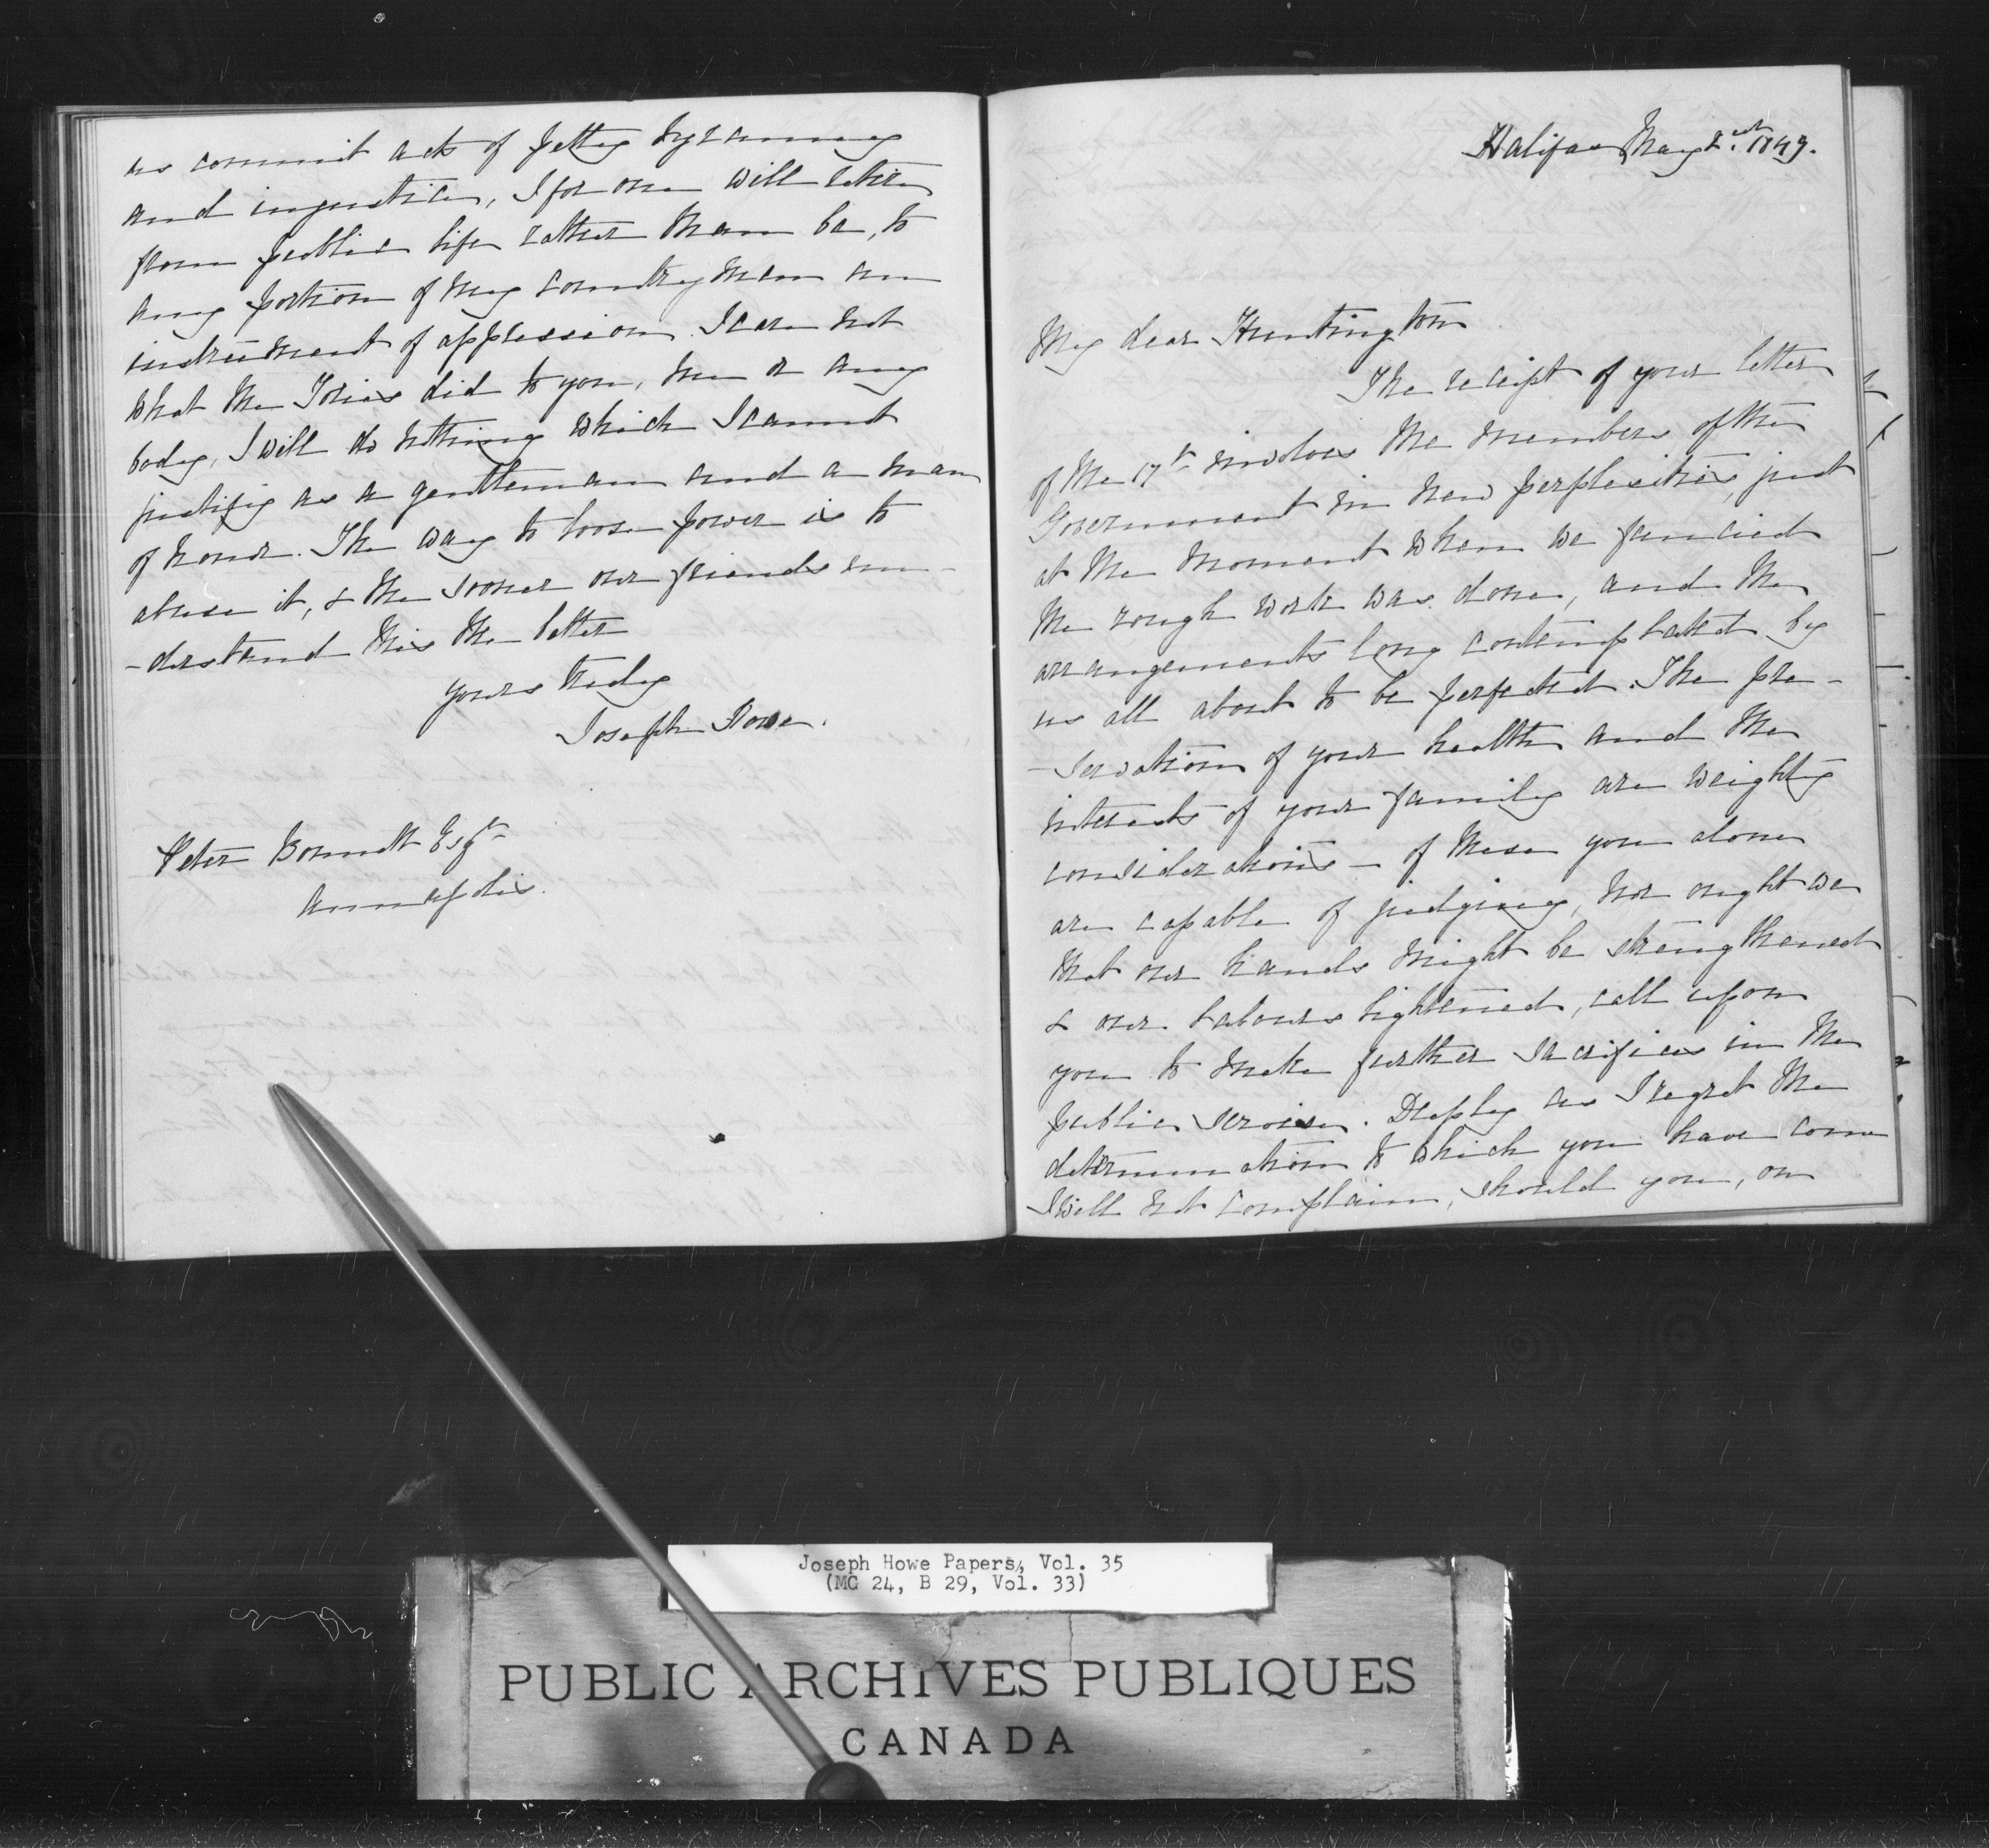 us commit acts of petty tyranny
and injustice, I for one will retire
from public life rather than be, to
any portion of my countrymen an
instrument of oppression. I care not
what the Tories did to you, me or any
body, I will do nothing which I cannot
justify as a gentleman and a man
of honor. The way to loose power is to
abuse it, & the sooner our friends un-
-derstand this the better
yours truly
Joseph Howe.
Peter Bonnett Esqr
Annapolis.
Halifax May 1849.
My dear Huntington
The receipt of your letter
of the 17th involves the members of the
Government in new perplexities, just
at the moment when we fancied
the rough work was done, and the
arrangements long contemplated by
us all about to be perfected. The pre-
-servation of your health and the
interests of your family are weighty
considerations - of these you alone
are capable of judging, nor ought we
that our hands might be strengthened
& our labours lightened, call upon
you to make further sacrifices in the
public service. Deeply as I regret the
determination to which you have come
I will not complain, should you, on
Joseph Howe Papers, Vol. 35
(MG 24, B 29, Vol. 33)
PUBLIC ARCHIVES PUBLIQUES
CANADA